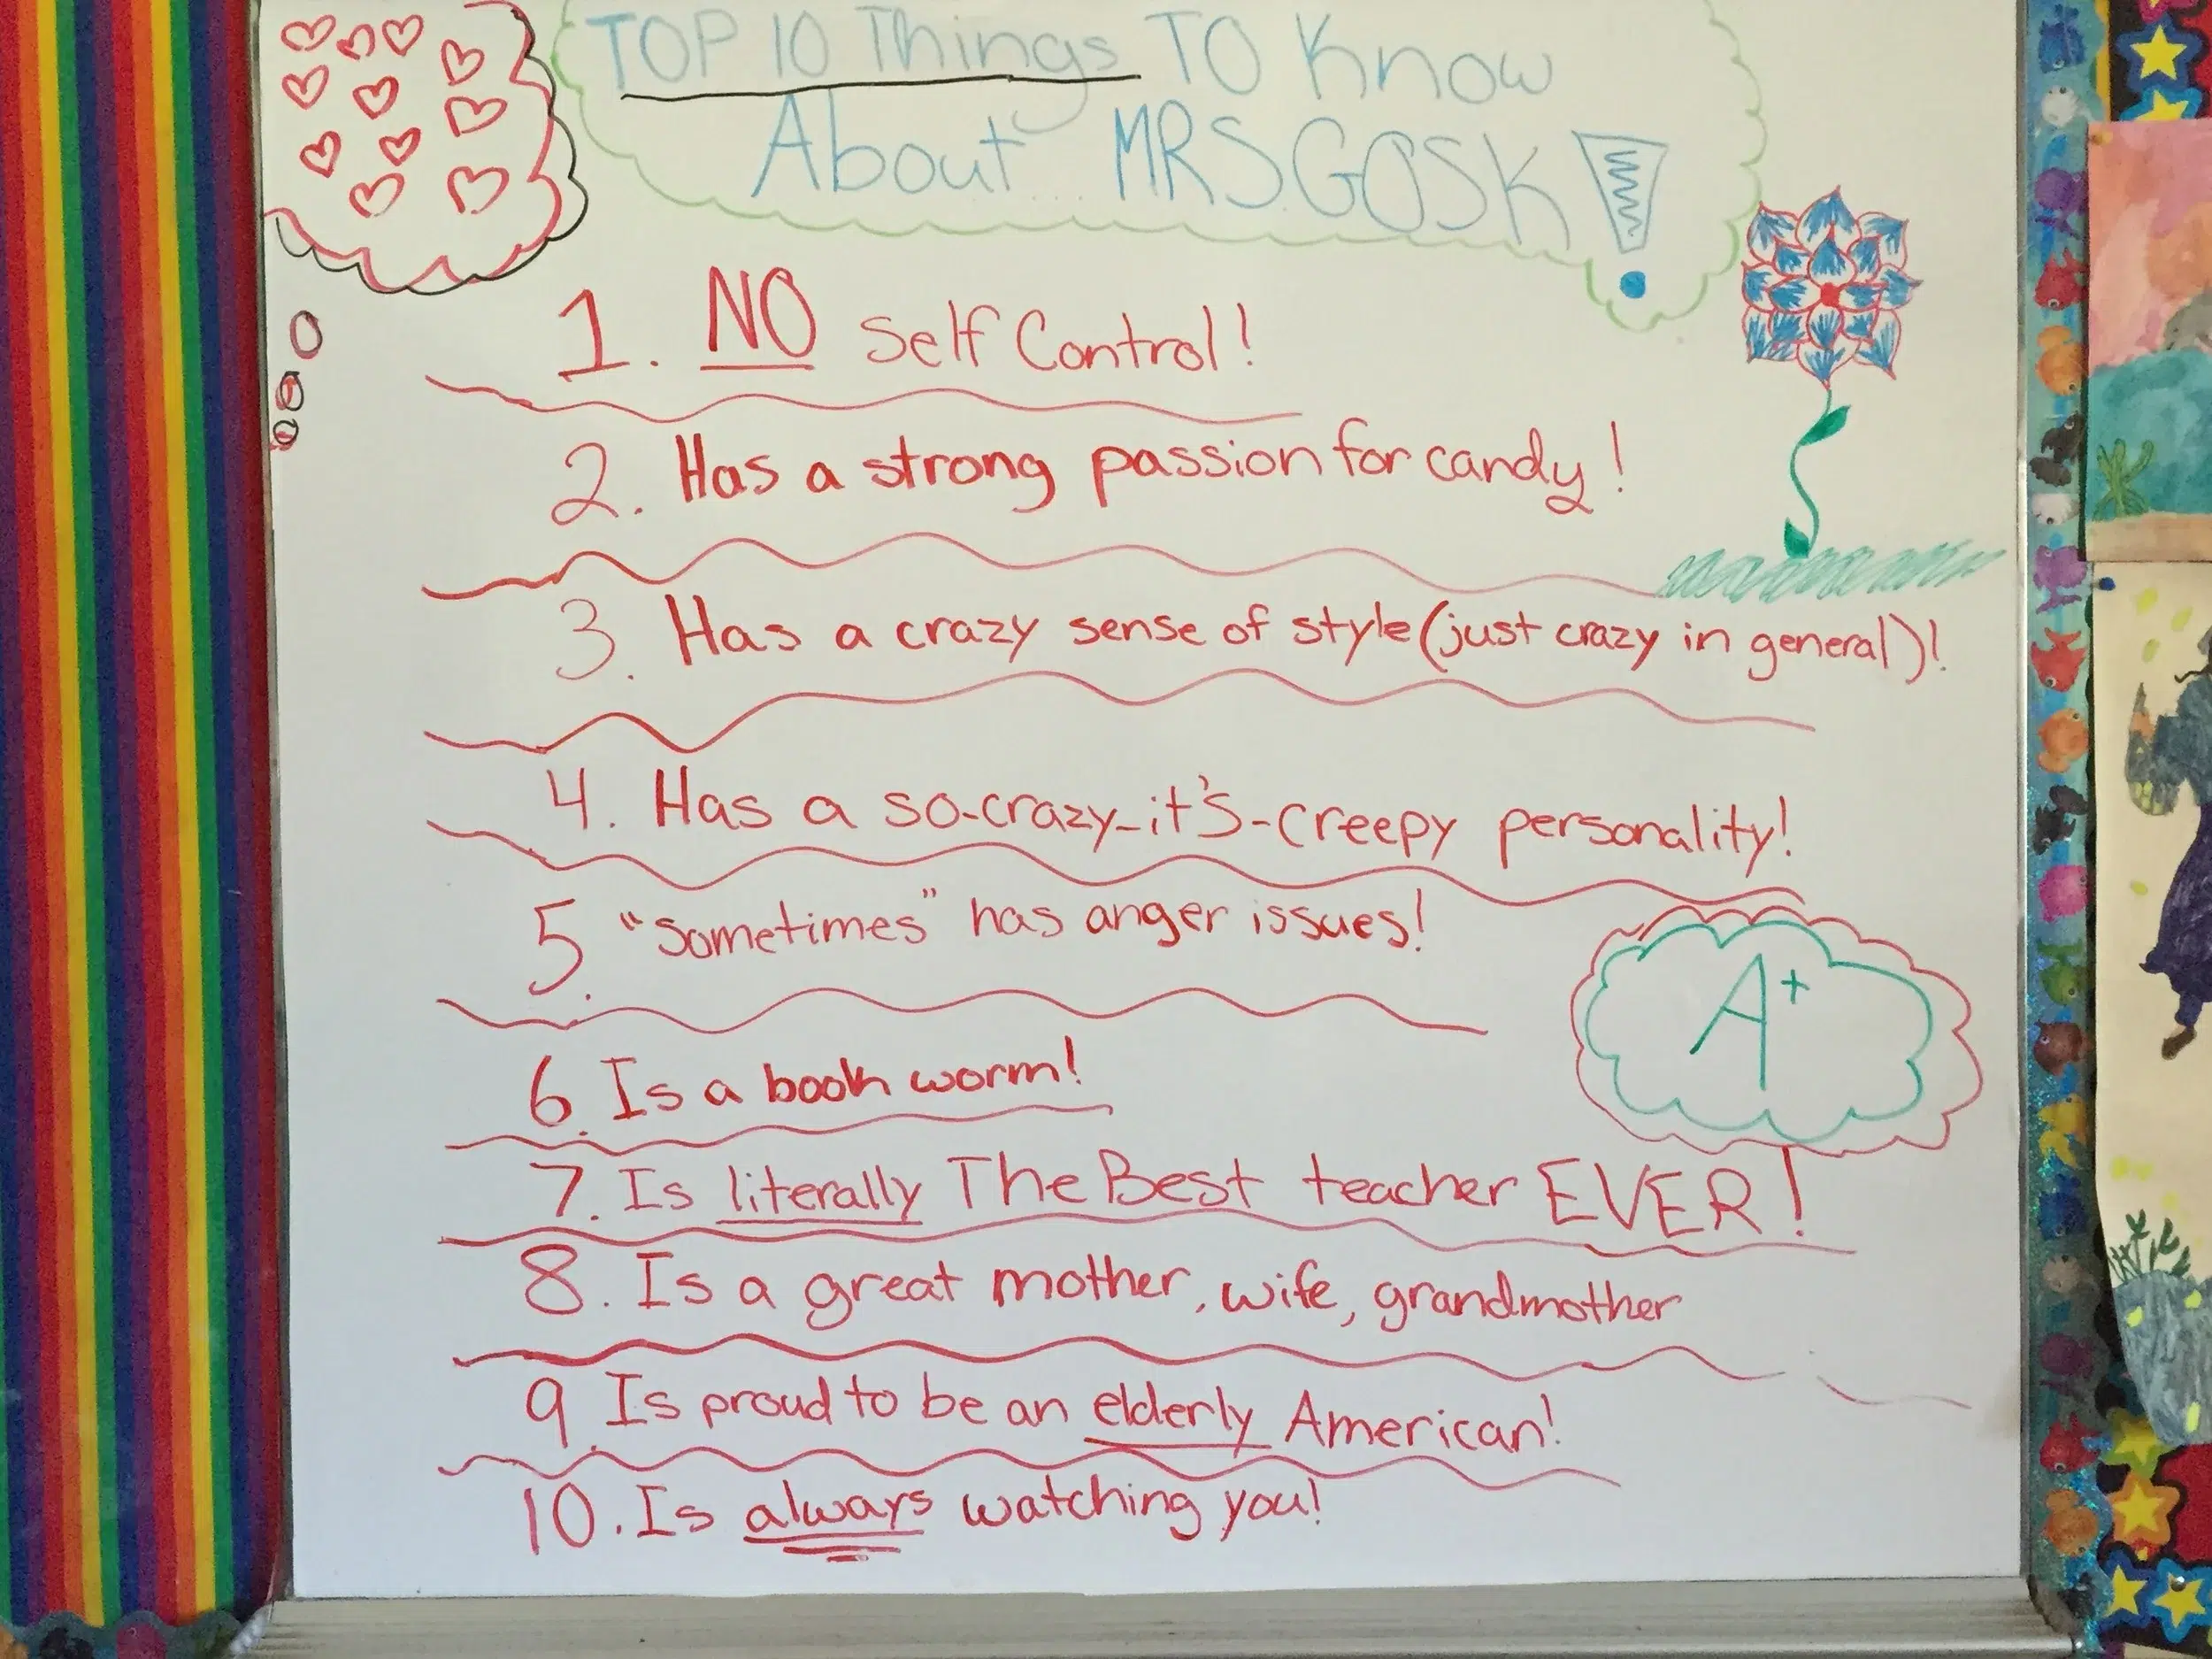 TOP 10 Things TO Know
About... MRS. GOSK!
1. NO Self Control!
2. Has a strong passion for candy!
3. Has a crazy sense of style (just crazy in general)!
4. Has a so-crazy-it's-creepy personality!
5. "sometimes" has anger issues!
A+
6. Is a book worm!
7. Is literally The Best teacher EVER!
8. Is a great mother, wife, grandmother
9. Is proud to be an elderly American!
10. Is always watching you!